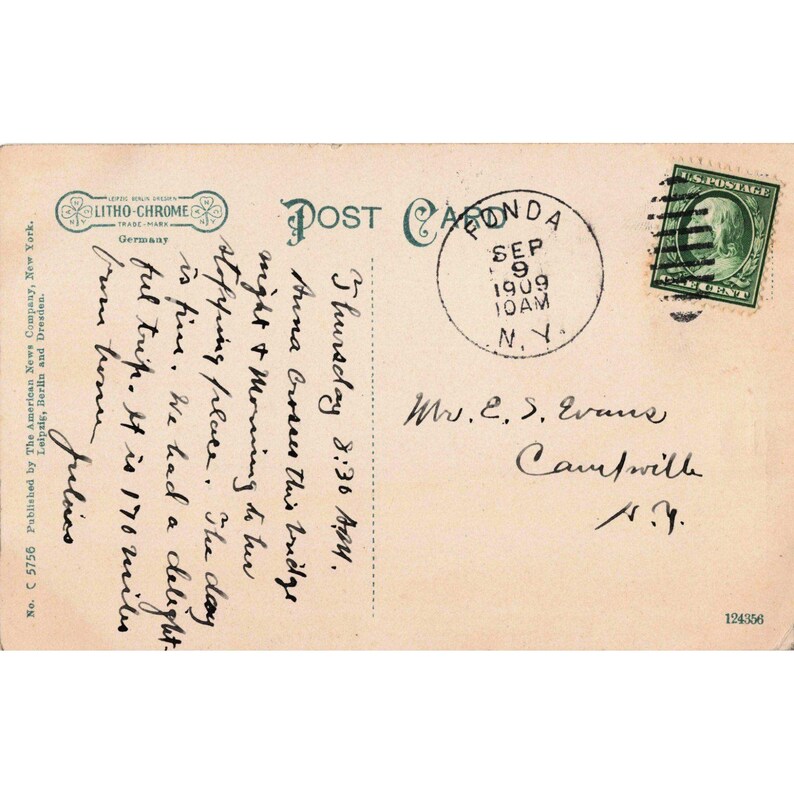 No. C 5756 Published by The American News Company, New York.
Leipzig, Berlin and Dresden.
LEIPZIG BERLIN DRESDEN
LITHO-CHROME
TRADE-MARK
Germany
POST CARD
FONDA
SEP
9
1909
10AM
N.Y.
U.S. POSTAGE
ONE CENT
Thursday 8:30 A.M.
Anna Crosses this bridge
night & Morning to her
stopping place. The day
is fine. We had a delight-
ful trip. It is 170 miles
from home
Julius
Mr. E. S. Evans
Campville
N.Y.
124356